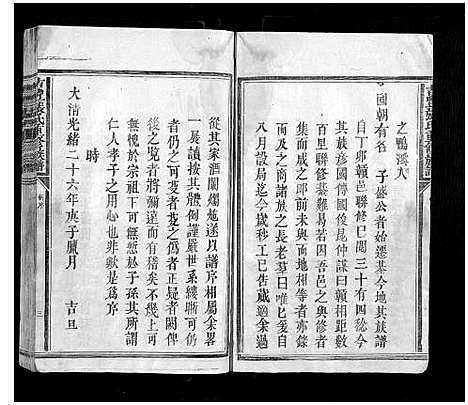 之鴨濠人
國朝有名　子盛公者始遷墓今地其族譜
自丁卯贛邑聯修已閱三十有四稔今
其族彥國傅國俊昆仲謀曰贛相距數
百里聯修綦難易若因吾邑之與修者
咸與即前未與而地相等者亦錄
之於是商諸族之長老羣曰唯唯爰自
八月設局迄今歲杪工已告歲適余過
從其家酒闌爥灺遂以譜序相屬余畧
一展讀按其體例謹嚴世系縷晰可仍
者仍之可芟者芟之僞者正疑者闕俾
後之覽者將彌遠而有稽矣不幾上可
無憾於宗祖下可無忝於子孫其所謂
仁人孝子之用心也非歟是爲序
時
大清光緒二十六年庚子臘月　吉旦